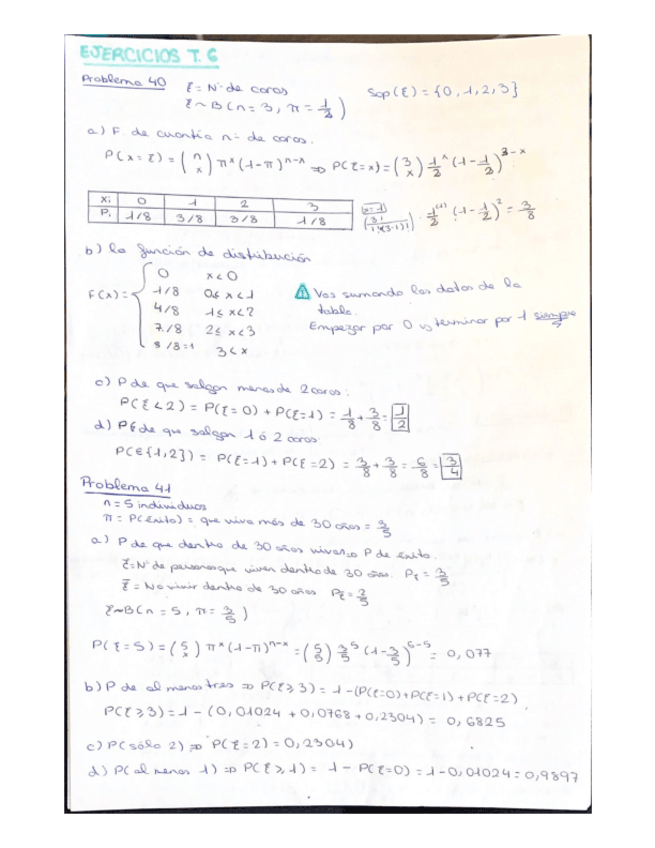 EJERCICIOS T. 6
Problema 40
ξ = Nº de caras
Sop(ξ) = {0, 1, 2, 3}
ξ ~ B(n = 3, π = 1/2)
a) F. de cuantía nº de caras.
P(x = ξ) = (n x) π^x (1-π)^(n-x) ⇒ P(ξ=x) = (3 x) 1/2^x (1 - 1/2)^(3-x)
xi 0 1 2 3
Pi 1/8 3/8 3/8 1/8
x=1
(3!/1!(3-1)!) · 1/2^(1) (1 - 1/2)^2 = 3/8
b) la función de distribución
F(x) =
0 x<0
1/8 0≤x<1
4/8 1≤x<2
7/8 2≤x<3
8/8=1 3<x
Vas sumando los datos de la
tabla.
Empezar por 0 y terminar por 1 siempre
c) P de que salgan menos de 2 caras:
P(ξ<2) = P(ξ=0) + P(ξ=1) = 1/8 + 3/8 = 1/2
d) P de que salgan 1 ó 2 caras
P(∈{1,2}) = P(ξ=1) + P(ξ=2) = 3/8 + 3/8 = 6/8 = 3/4
Problema 41
n = 5 individuos
π = P(éxito) = que viva más de 30 años = 3/5
a) P de que dentro de 30 años vivas ⇒ P de éxito.
ξ = Nº de personas que viven dentro de 30 años. Pξ = 3/5
ξ̄ = No vivir dentro de 30 años Pξ̄ = 2/5
ξ~B(n = 5, π = 3/5)
P(ξ=5) = (5 x) π^x (1-π)^(n-x) = (5 5) 3/5^5 (1 - 3/5)^(5-5) = 0,077
b) P de al menos tres ⇒ P(ξ≥3) = 1 - (P(ξ=0) + P(ξ=1) + P(ξ=2)
P(ξ≥3) = 1 - (0,01024 + 0,0768 + 0,2304) = 0,6825
c) P(sólo 2) ⇒ P(ξ=2) = 0,2304)
d) P(al menos 1) ⇒ P(ξ≥1) = 1 - P(ξ=0) = 1 - 0,01024 = 0,9897